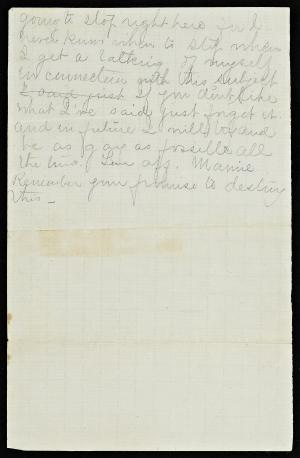 going to stop right here for I
never know when to stop when
I get a talking of myself
in connection with this subject
I said just If you don't like
what I've said just forget it
and in future I will try and
be as gay as possible all
the time. Mamie
Remember your promise to destroy
this —